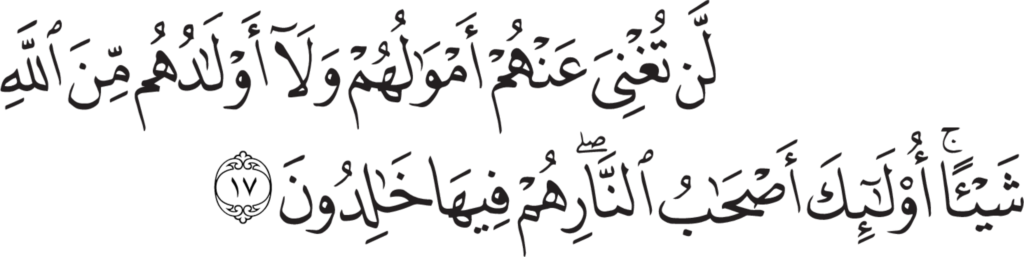 لَّن تُغْنِىَ عَنْهُمْ أَمْوَٰلُهُمْ وَلَآ أَوْلَٰدُهُم مِّنَ ٱللَّهِ
شَيْـًٔاۚ أُو۟لَٰٓئِكَ أَصْحَٰبُ ٱلنَّارِۖ هُمْ فِيهَا خَٰلِدُونَ ١٧